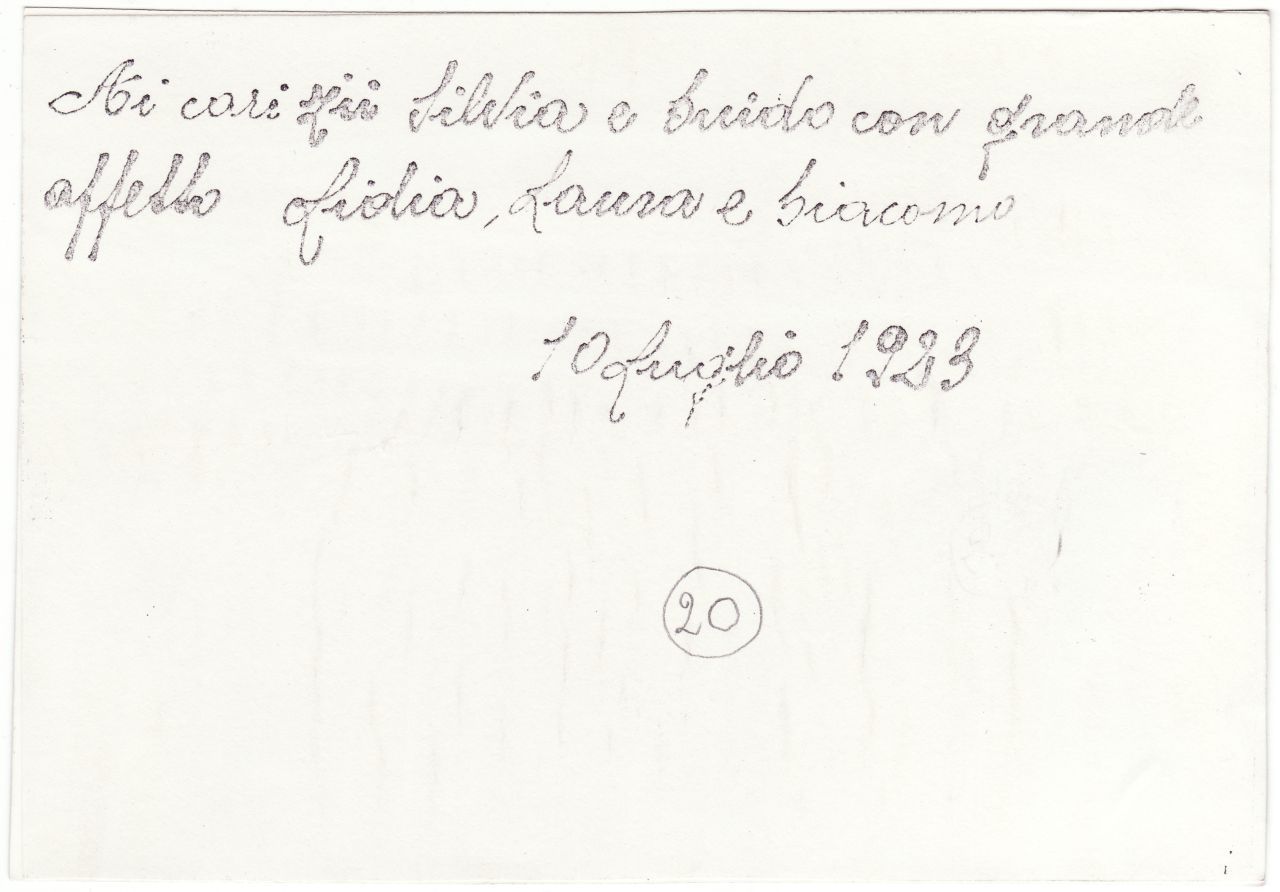 Ai cari zii Silvia e Guido con grande
affetto Lidia, Laura e Giacomo
10 Luglio 1923
20